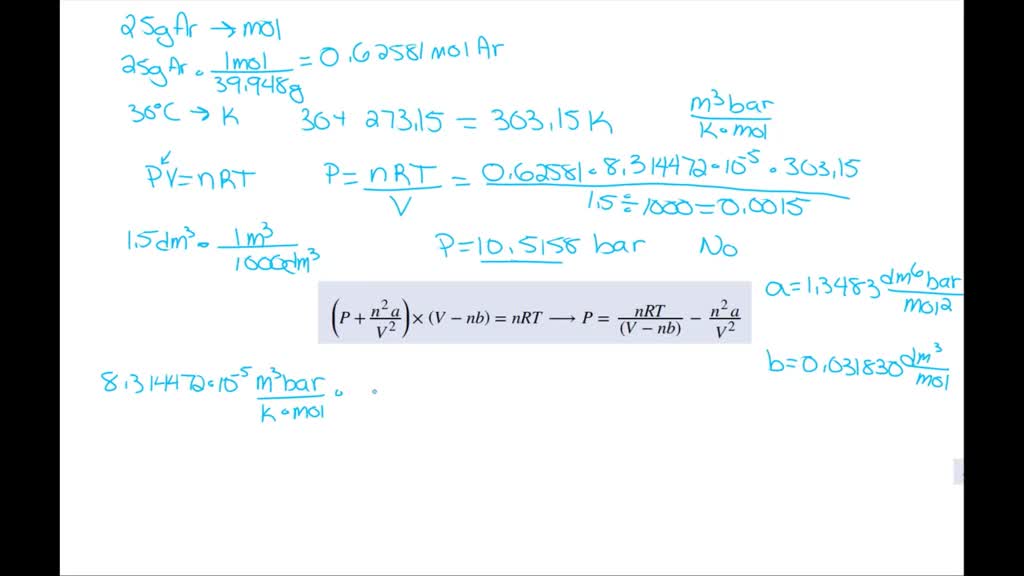 25g Ar → mol
25g Ar · 1mol / 39.948g = 0.62581 mol Ar
30°C → K 30 + 273.15 = 303.15 K m³bar / K·mol
PV = nRT P = nRT / V = 0.62581 · 8.314472 · 10⁻⁵ · 303.15 / 1.5 ÷ 1000 = 0.0015
1.5 dm³ · 1m³ / 1000dm³ P = 10.5158 bar No
a = 1.3483 dm⁶ bar / mol²
(P + n²a / V²) × (V − nb) = nRT ⟶ P = nRT / (V − nb) − n²a / V²
b = 0.031830 dm³ / mol
8.314472 · 10⁻⁵ m³bar / K·mol ·